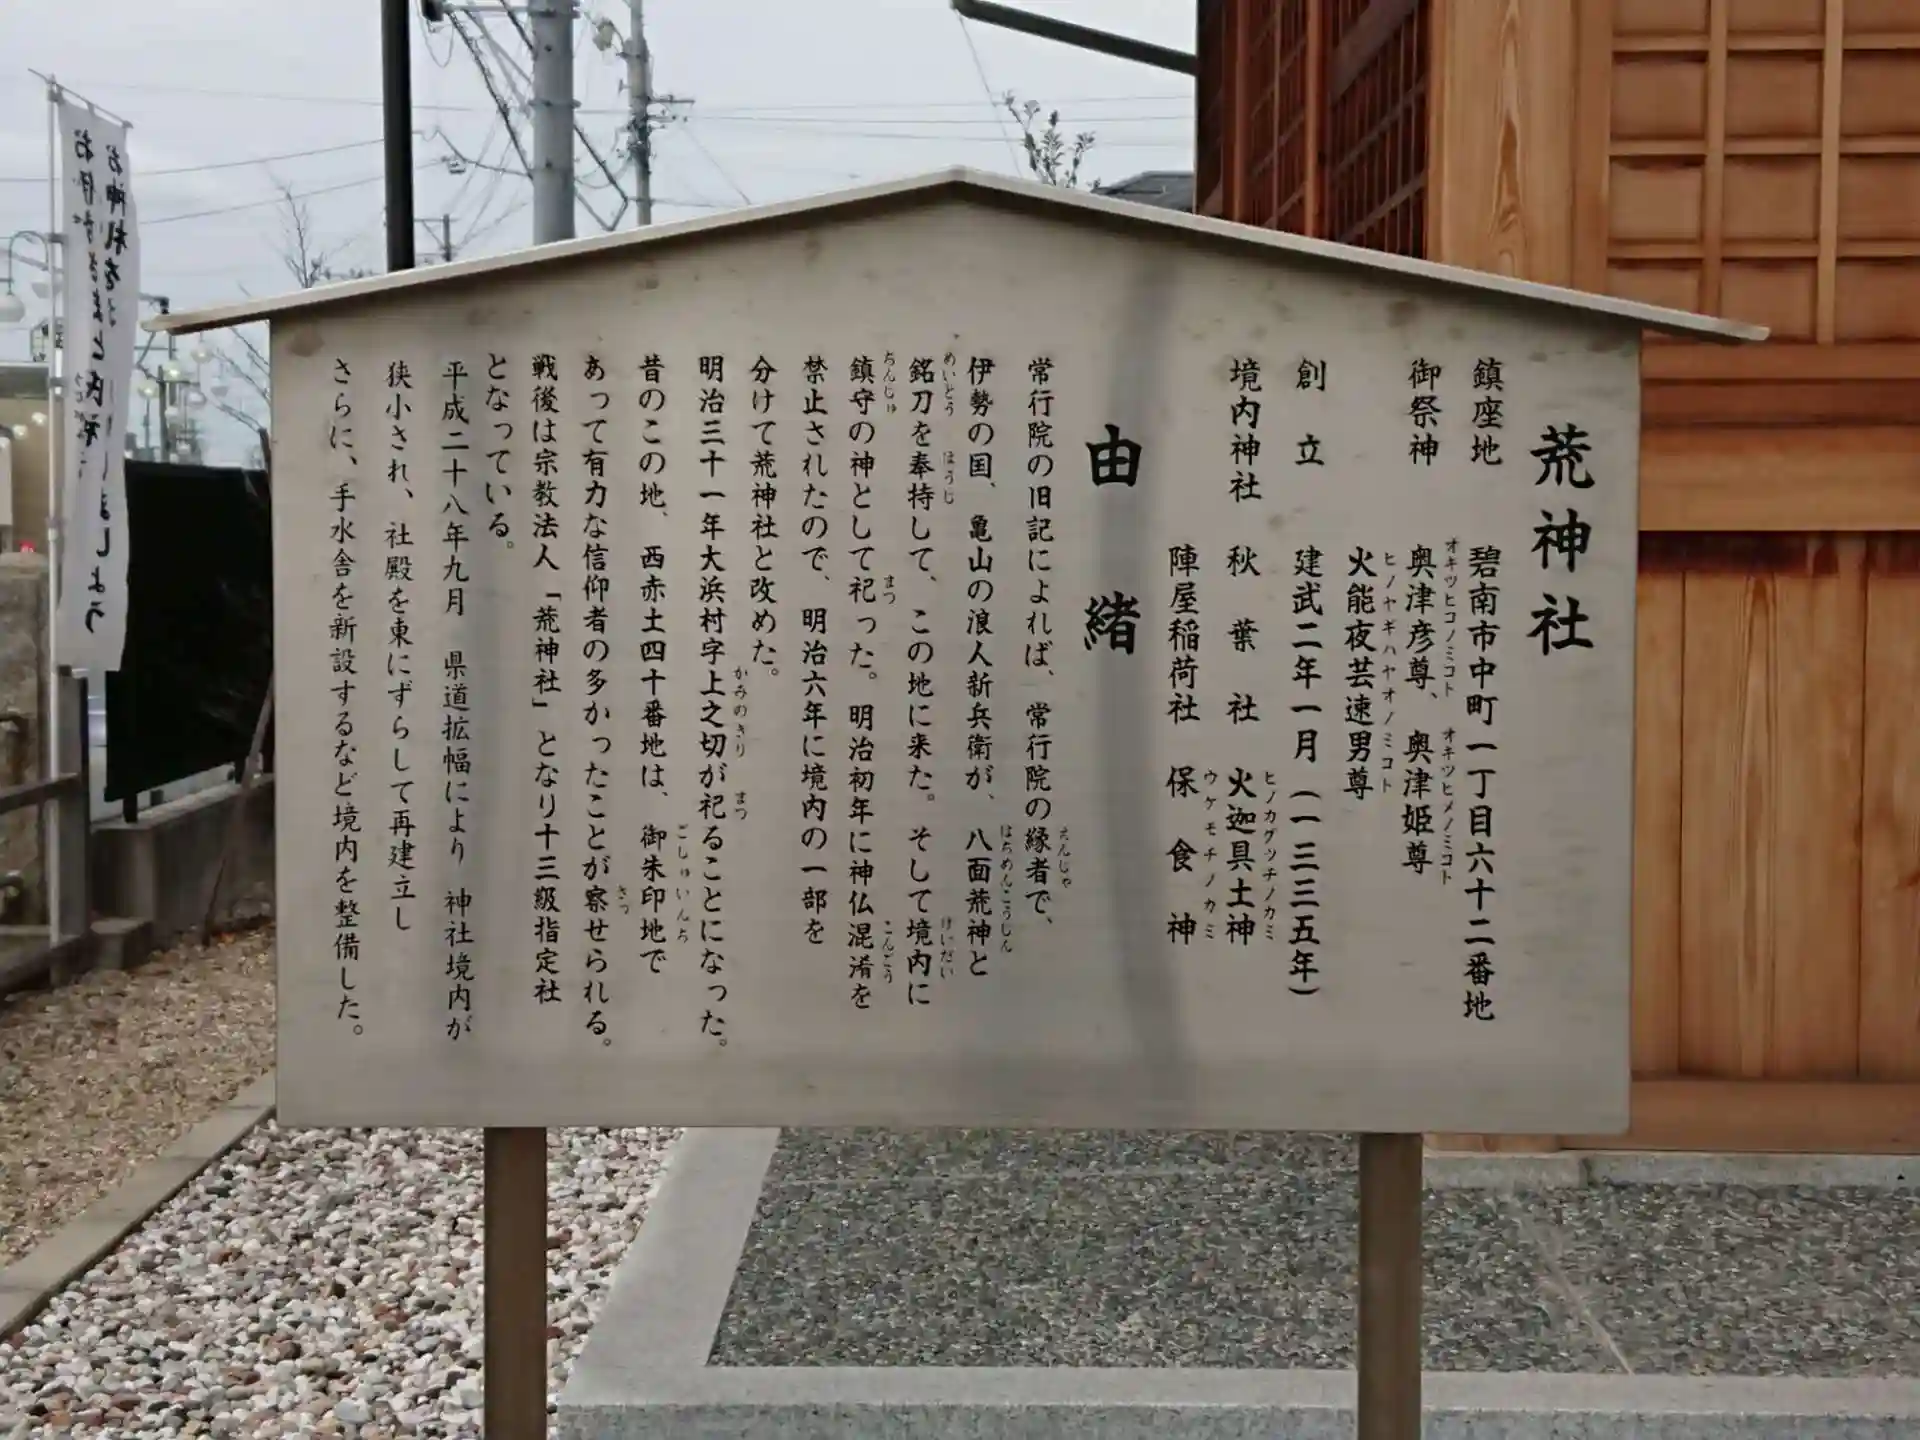 荒神社
鎮座地 碧南市中町一丁目六十二番地
御祭神 奥津彦尊、奥津姫尊
オキツヒコノミコト オキツヒメノミコト
火能夜芸速男尊
ヒノヤギハヤオノミコト
創立 建武二年一月(一三三五年)
境内神社 秋葉社 火迦具土神
ヒノカグツチノカミ
陣屋稲荷社 保食神
ウケモチノカミ
由緒
常行院の旧記によれば、常行院の縁者で、
えんじゃ
伊勢の国、亀山の浪人新兵衛が、八面荒神と
はちめんこうじん
銘刀を奉持して、この地に来た。そして境内に
めいとう ほうじ けいだい
鎮守の神として祀った。明治初年に神仏混淆を
ちんじゅ まつ こんごう
禁止されたので、明治六年に境内の一部を
分けて荒神社と改めた。
明治三十一年大浜村字上之切が祀ることになった。
かみのきり まつ
昔のこの地、西赤土四十番地は、御朱印地で
ごしゅいんち
あって有力な信仰者の多かったことが察せられる。
さっ
戦後は宗教法人「荒神社」となり十三級指定社
となっている。
平成二十八年九月 県道拡幅により 神社境内が
狭小され、社殿を東にずらして再建立し
さらに、手水舎を新設するなど境内を整備した。